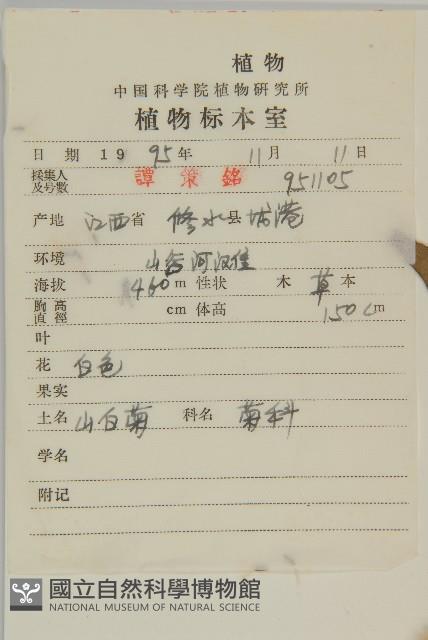 植物
中国科学院植物研究所
植物标本室
日期 1995年 11月 11日
採集人及号數 譚策銘 951105
产地 江西省 修水县 港
环境 山谷河汉
海拔 460m 性状 木 草本
胸高直徑 cm 体高 150cm
叶
花 白色
果实
土名 山白菊 科名 菊科
学名
附记
國立自然科學博物館
NATIONAL MUSEUM OF NATURAL SCIENCE